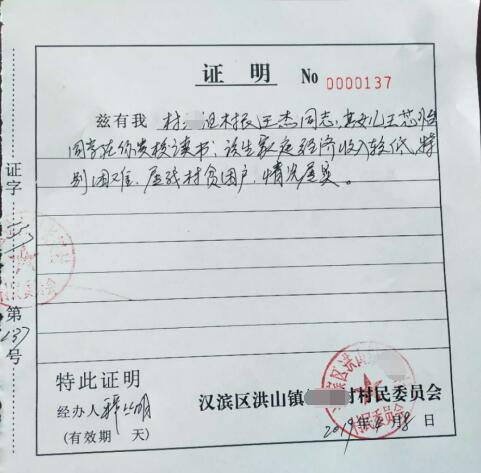 证明 No 0000137
兹有我 村 村民王杰同志,其女儿王芯怡
同学在你贵校读书,该生家庭经济收入较低,特
别困难,属我村贫困户,情况属实。
证字
第
137
号
特此证明
经办人
(有效期 天)
汉滨区洪山镇 村村民委员会
2019年 月8日
汉滨区洪山
村民委员会